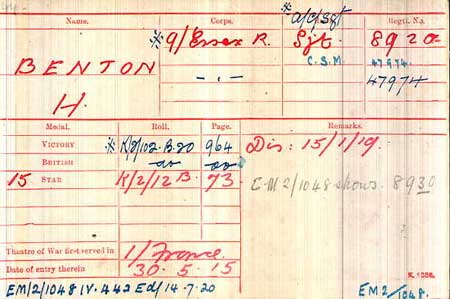 Name. Corps. Regtl. No.
※ a/c/Sgt
BENTON ※ 9/Essex R. Sjt. 8920
H. -,,- C.S.M. 47974.
47974
Medal. Roll. Page. Remarks.
VICTORY ※ K/2/102.B.20 964 Dis: 15/1/19.
BRITISH do do
15 STAR K/2/12 B. 73 E.M 2/1048 shows. 8930
Theatre of War first served in 1/ France.
Date of entry therein 30.5.15 K. 1380.
EM/2/1048 IV. 442 Ed/14.7.20 EM 2/1048.